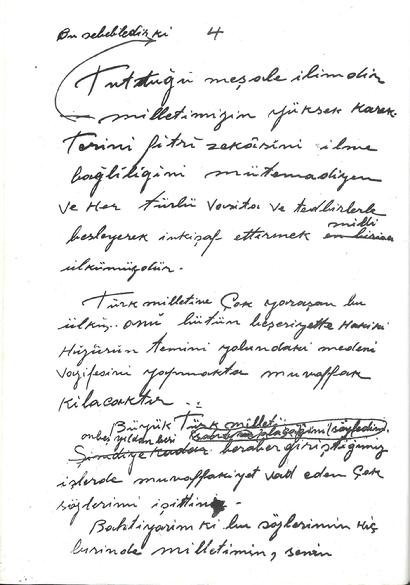 Bu sebebledir ki 4
Tuttuğu meşale ilimdir
milletimizin yüksek karek-
terini fitrî zekâsını ilme
bağlılığını mütemadiyen
ve her türlü vasıta ve tedbirlerle
milli
besleyerek inkişaf ettirmek
ülkümüzdür.
Türk milletine çok yaraşan bu
ülkü, onu bütün beşeriyette hakiki
Huzurun temini yolundaki medeni
vazifesini yapmakta muvaffak
kılacaktır
Büyük Türk milleti
onbeş yıldan beri
Şimdiye kadar beraber giriştiğimiz
işlerde muvaffakiyet vadeden çok
sözlerimi işittin.
Bahtiyarım ki bu sözlerimin hiç
birinde milletimin, senin